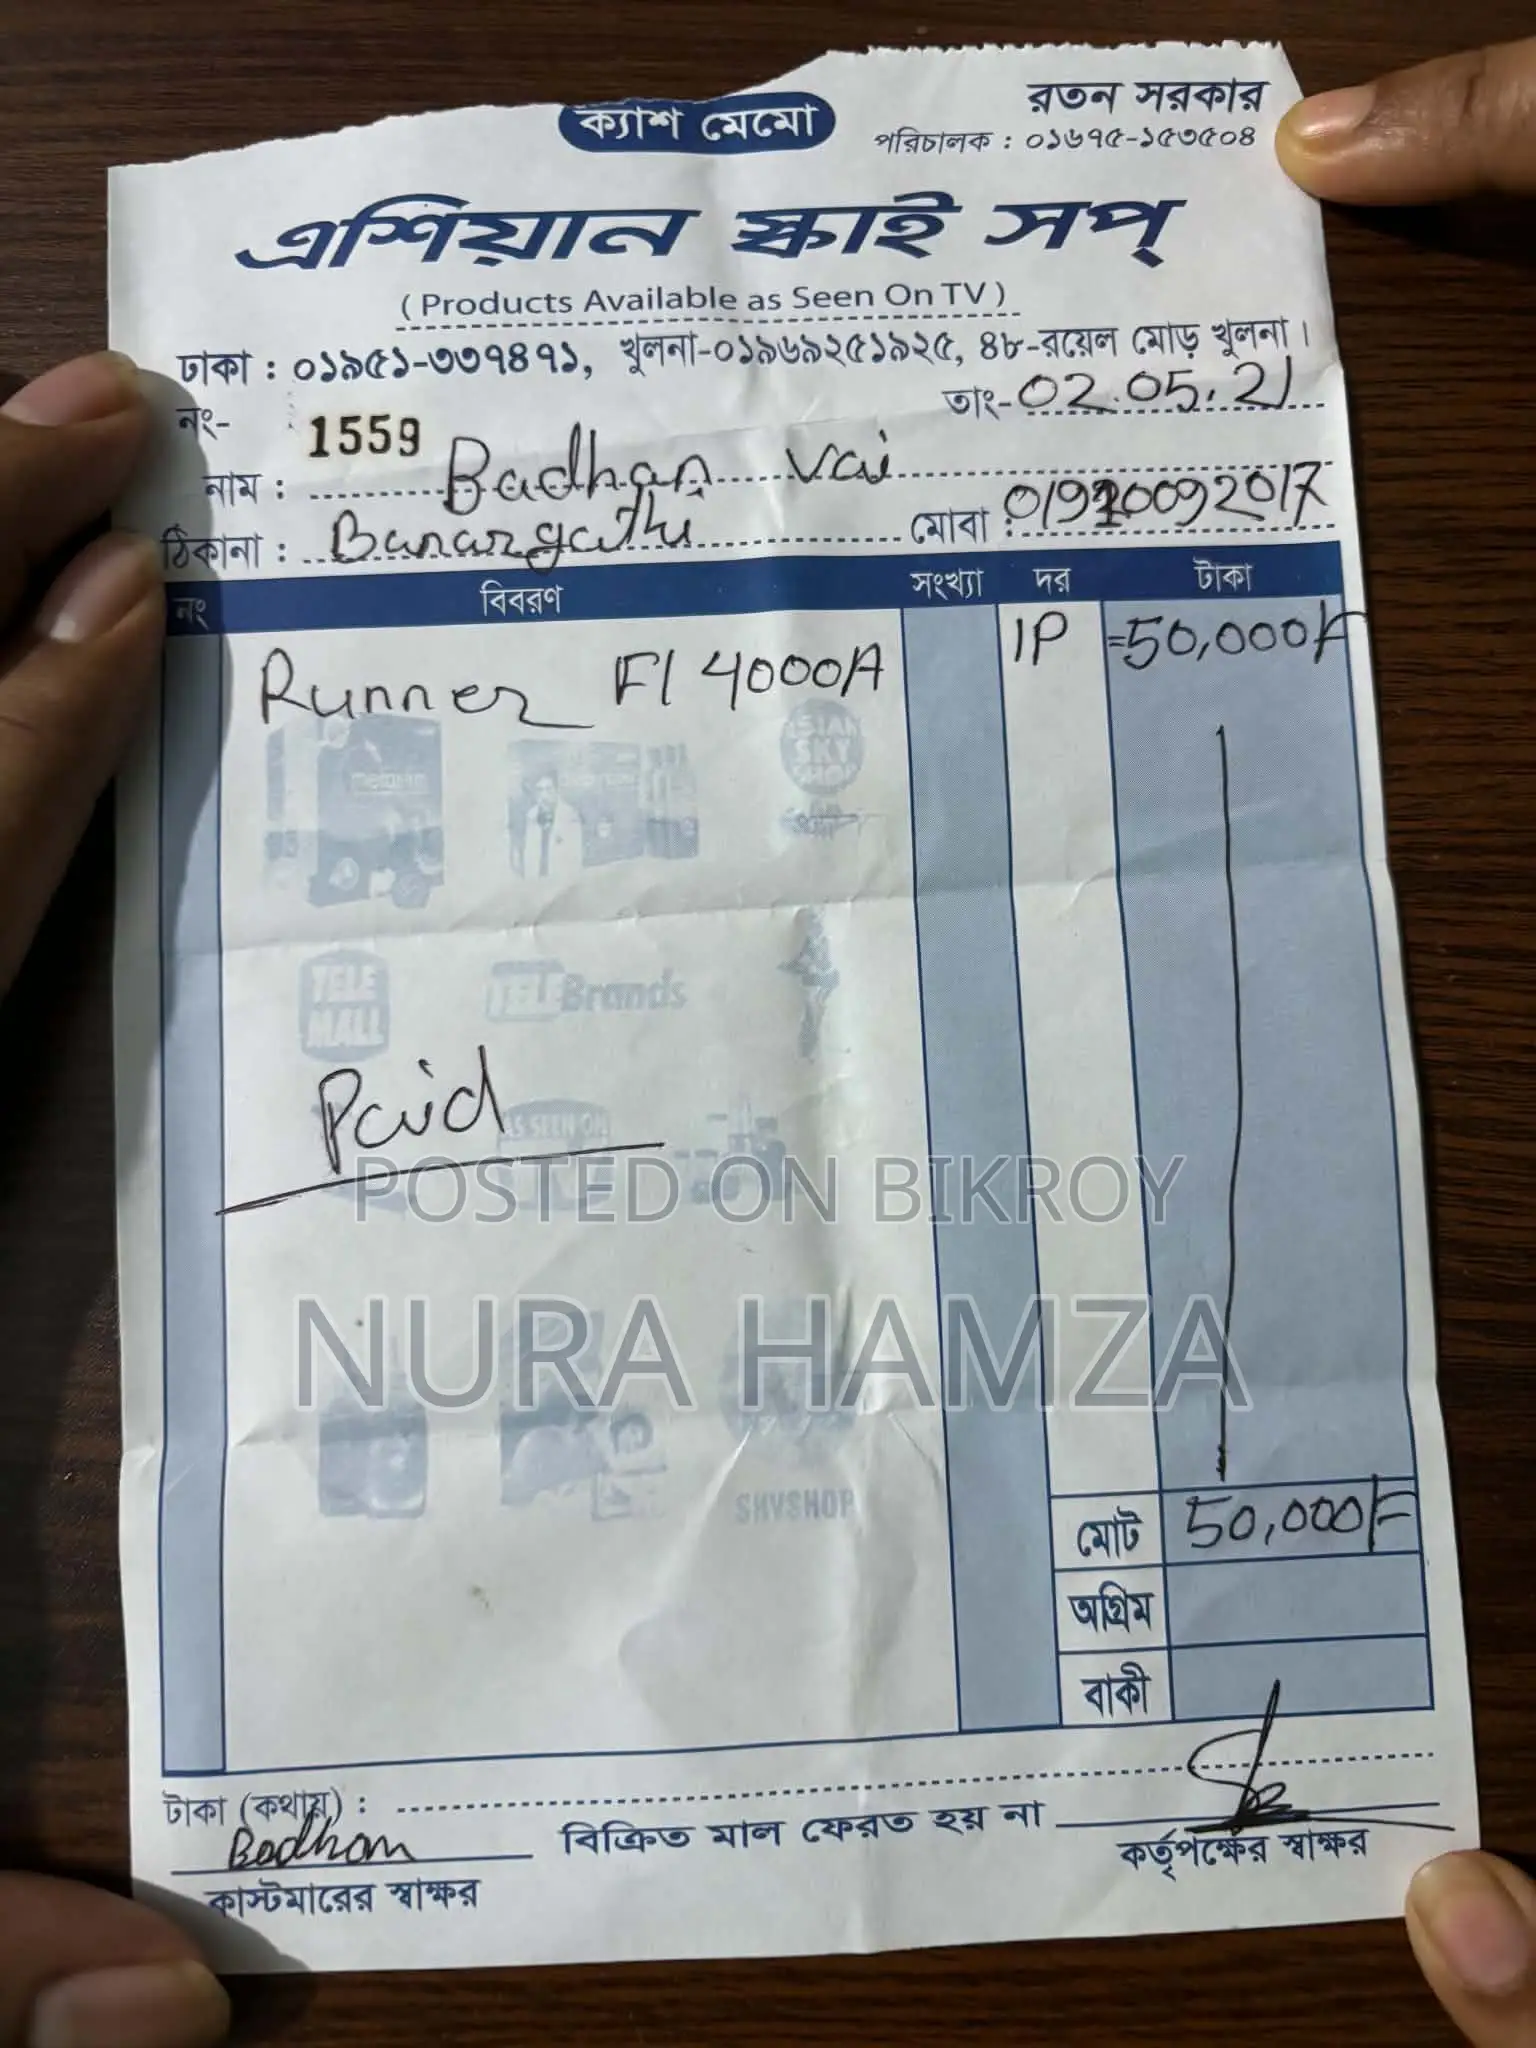 ক্যাশ মেমো
রতন সরকার
পরিচালক : ০১৬৭৫-১৫৩৫০৪
এশিয়ান স্কাই সপ্
( Products Available as Seen On TV )
ঢাকা : ০১৯৫১-৩৩৭৪৭১, খুলনা-০১৯৬৯২৫১৯২৫, ৪৮-রয়েল মোড় খুলনা।
নং- 1559 তাং- 02.05.21
নাম : Badhan vai
ঠিকানা : Banargathi মোবা : 01920092017
নং বিবরণ সংখ্যা দর টাকা
Runner F1 4000A 1P =50,000/=
ASIAN SKY SHOP
TELE MALL
TELE Brands
AS SEEN ON
Paid
POSTED ON BIKROY
NURA HAMZA
SKYSHOP
মোট 50,000/=
অগ্রিম
বাকী
টাকা (কথায়) :
Badhan
কাস্টমারের স্বাক্ষর
বিক্রিত মাল ফেরত হয় না
কর্তৃপক্ষের স্বাক্ষর